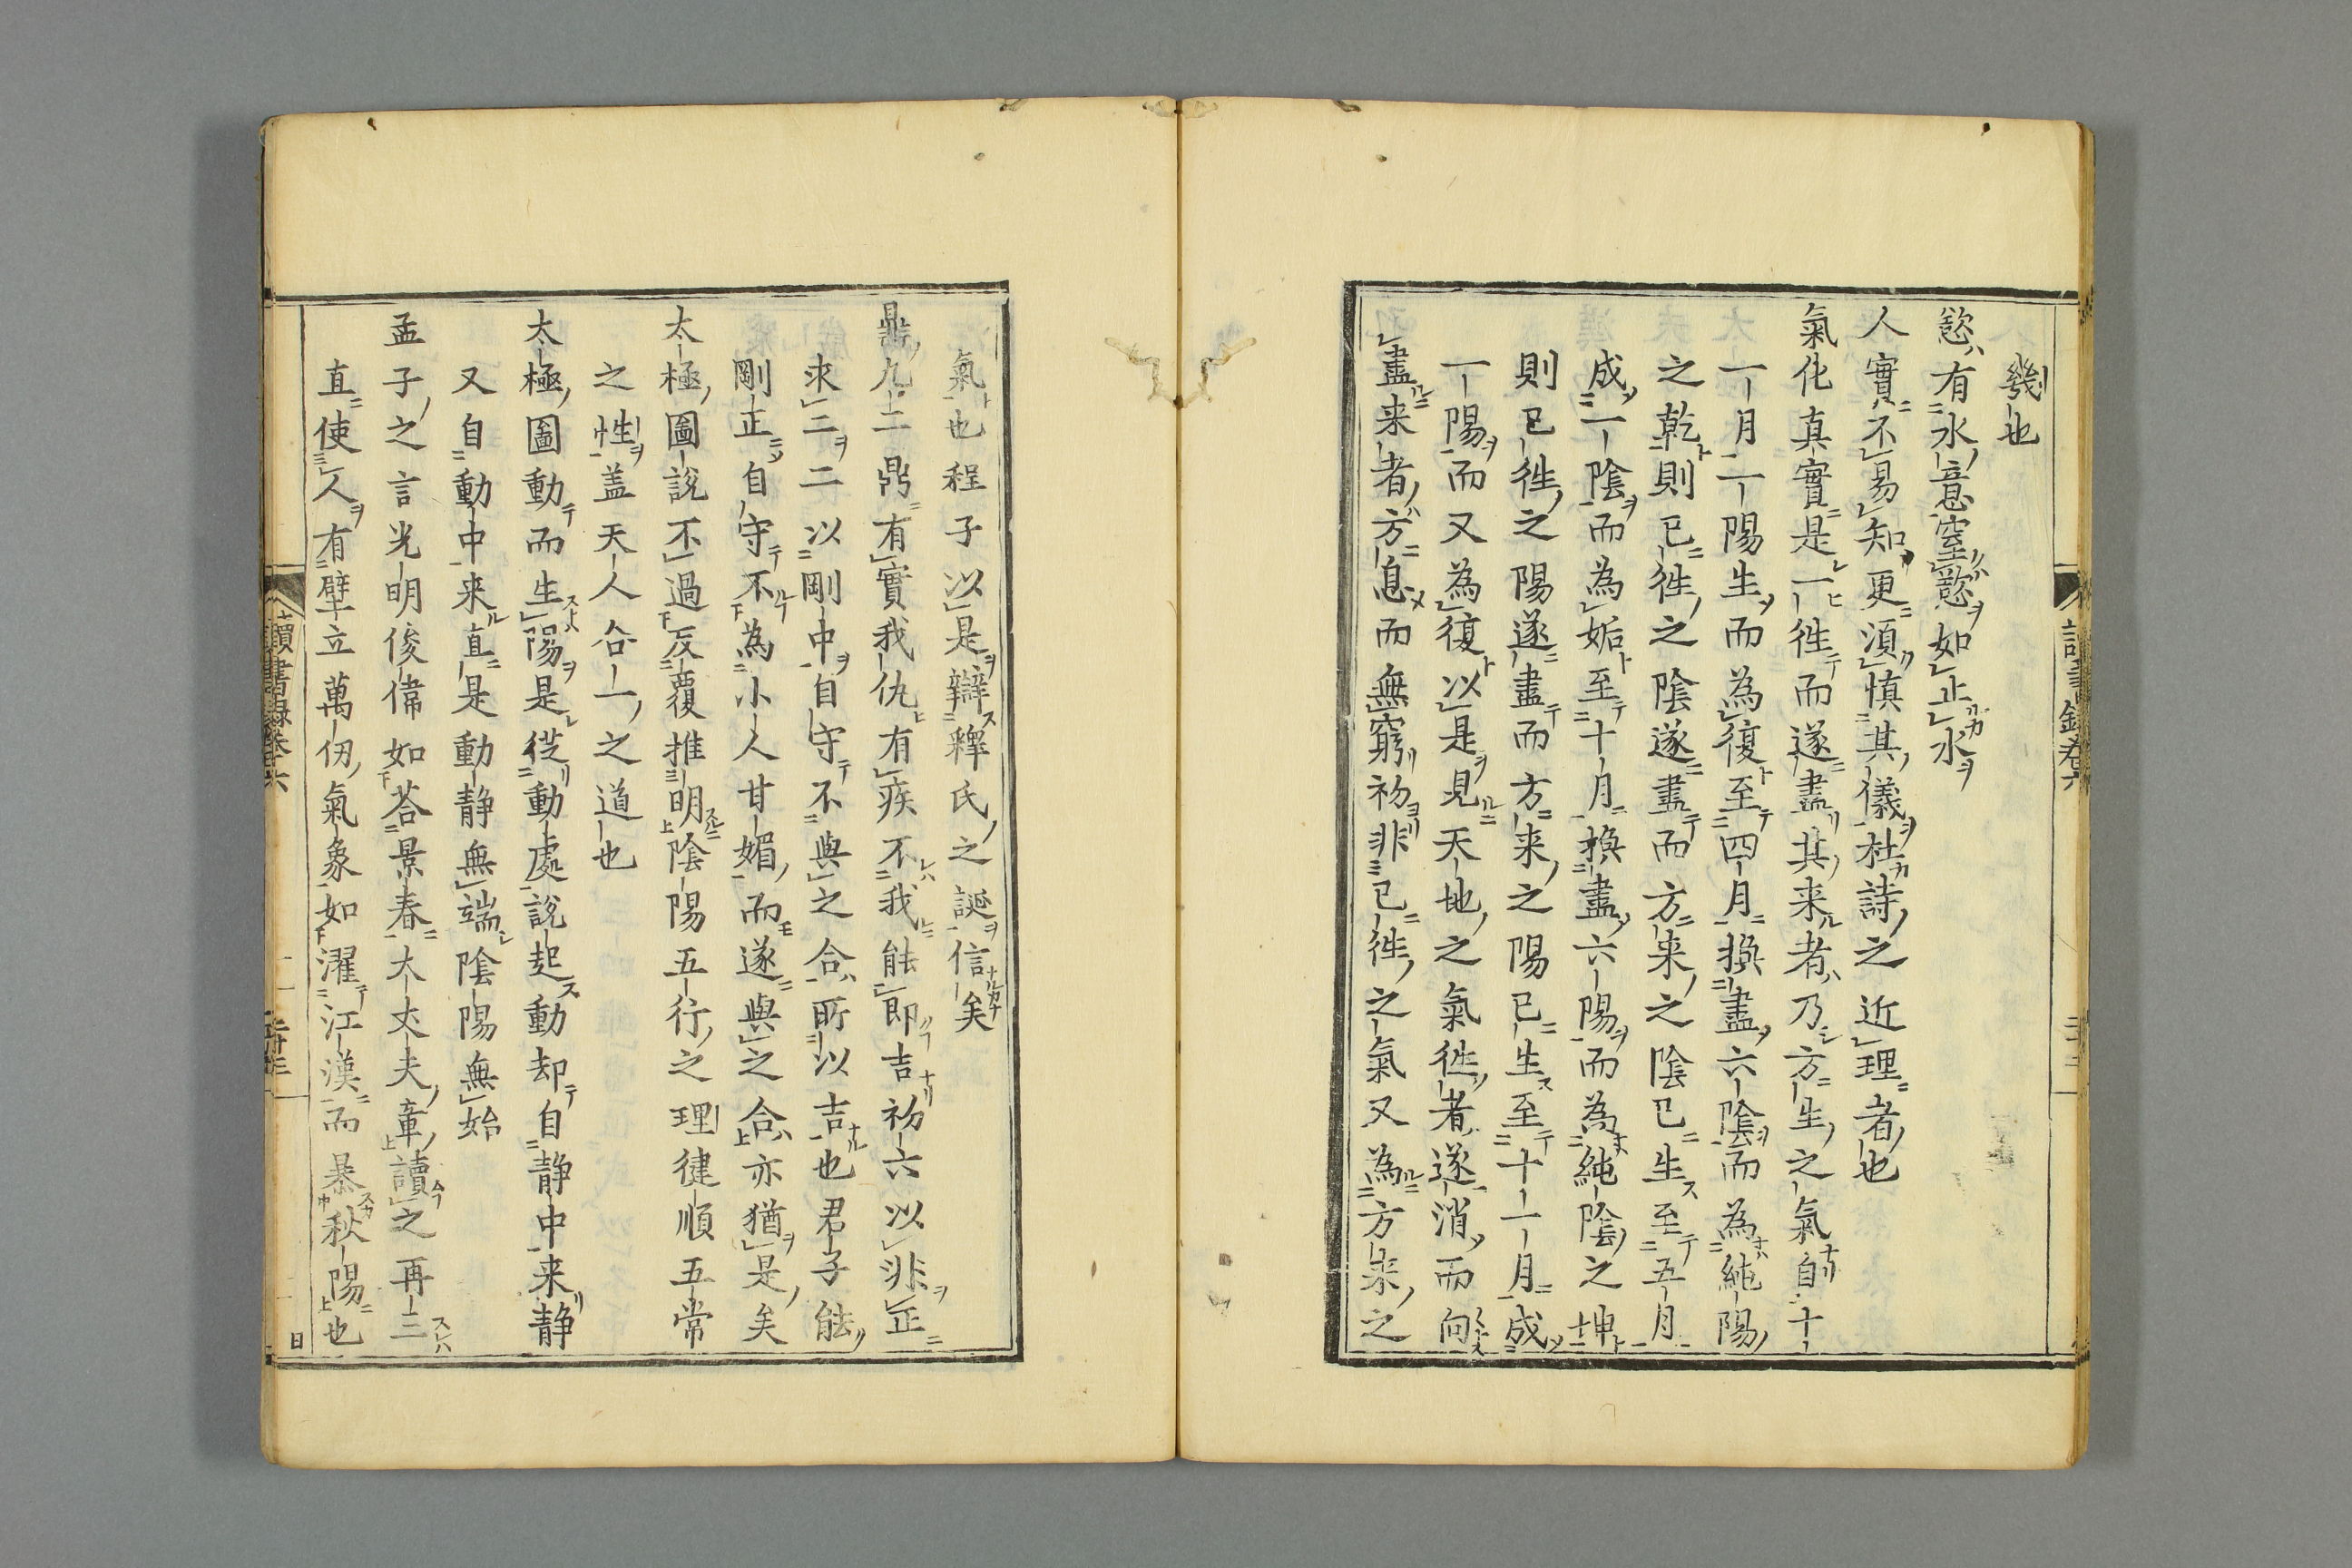 幾也
慾有水意窒慾如止水
人實不易知更須慎其儀杜詩之近理者也
氣化真實是一徃而遂盡其来者乃方生之氣自十
一月一陽生而為復至四月換盡六陰而為純陽
之乾則已徃之陰遂盡而方来之陰已生至五月
成一陰而為姤至十月換盡六陽而為純陰之坤
則已徃之陽遂盡而方来之陽已生至十一月成
一陽而又為復以是見天地之氣徃者遂消而向
盡来者方息而無窮初非已徃之氣又為方来之
氣也程子以是辯釋氏之誕信矣
鼎九二鼎有實我仇有疾不我能即吉初六以非正
求二二以剛中自守不與之合所以吉也君子能
剛正自守不為小人甘媚而遂與之合亦猶是矣
太極圖說不過反覆推明陰陽五行之理健順五常
之性盖天人合一之道也
太極圖動而生陽是從動處說起動却自静中来静
又自動中来直是動静無端陰陽無始
孟子之言光明俊偉如荅景春大丈夫章讀之再三
直使人有壁立萬仞氣象如濯江漢而暴秋陽也
讀書録卷六